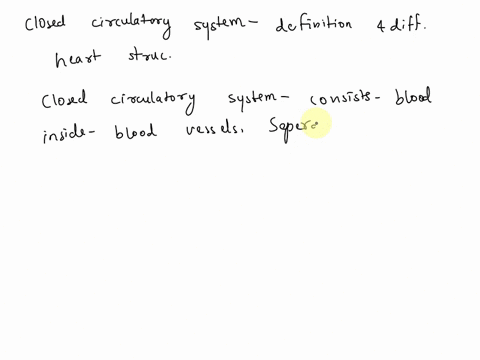 Closed circulatory system - definition & diff.
heart struc.
Closed circulatory system - consists - blood
inside - blood vessels. Sepera